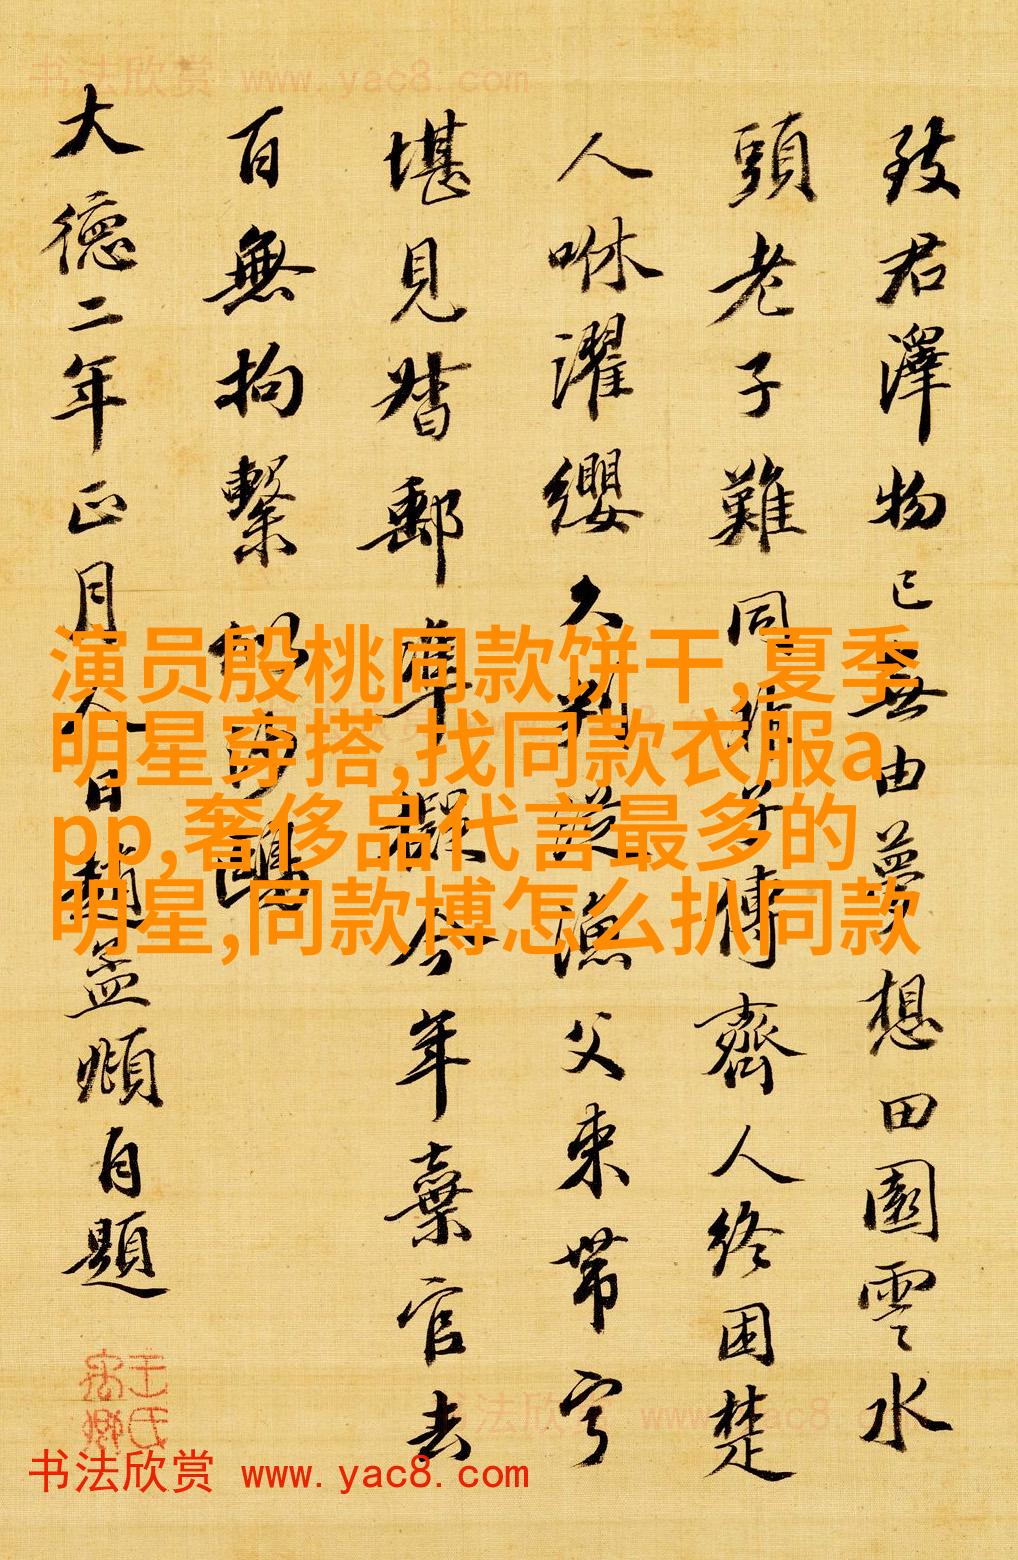 书法欣赏 www.yac8.com
致君澤物已無由夢想田園雲水
頭老子難同非子傳齊人終困楚
人咻濯纓久判從漁父束帶寧
堪見督郵準擬今年棄官去
百無拘繫似沙鷗
大德二年正月人日趙孟頫自題
演员殷桃同款饼干,夏季
明星穿搭,找同款衣服a
pp,奢侈品代言最多的
明星,同款博怎么扒同款
书法欣赏 www.yac8.com
书法欣赏 www.yac8.com